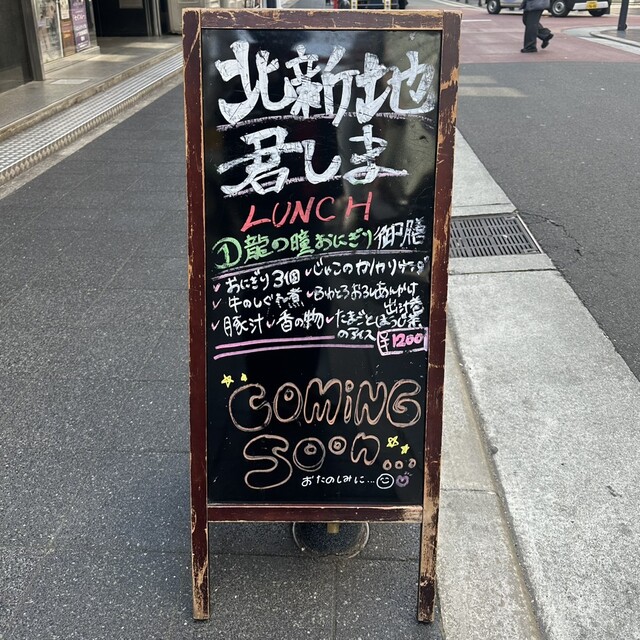 北新地
君しま
LUNCH
①龍の瞳おにぎり御膳
✓おにぎり3個 ✓じゃこのカリカリサラダ
✓牛のしぐれ煮 ✓ふわとろおろしあんかけ
出汁巻
✓豚汁 ✓香の物 ✓たまごとほうじ茶
のアイス
¥1200
COMiNG
SOON...
おたのしみに...